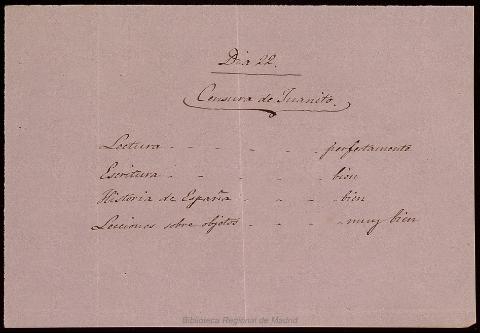 Dia 22.
Censura de Juanito.
Lectura - - - - - perfectamente
Escritura - - - - - bien
Historia de España - - - - bien
Lecciones sobre objetos - - - muy bien
Biblioteca Regional de Madrid